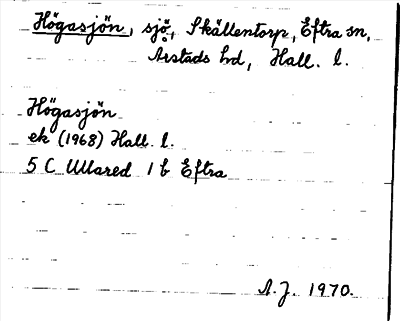 Högasjön, sjö, Skällentorp, Eftra sn,
Årstads hd, Hall. l.
Högasjön
ek (1968) Hall. l.
5 C Ullared 1 b Eftra
A.J. 1970.